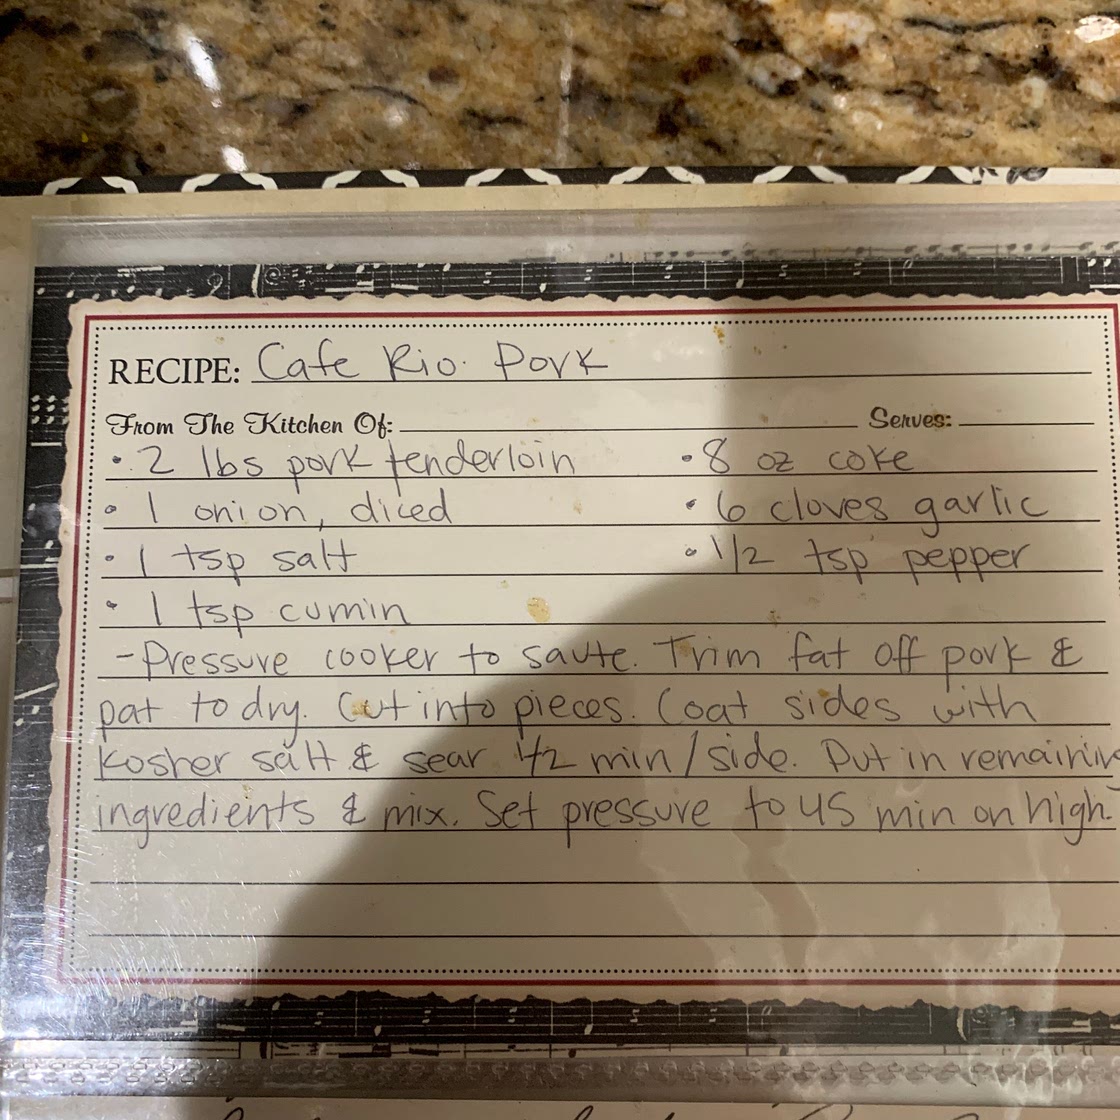 RECIPE: Cafe Rio Pork
From The Kitchen Of: Serves:
• 2 lbs pork tenderloin • 8 oz coke
• 1 onion, diced • 6 cloves garlic
• 1 tsp salt • 1/2 tsp pepper
• 1 tsp cumin
- Pressure cooker to saute. Trim fat off pork &
pat to dry. Cut into pieces. Coat sides with
kosher salt & sear 1/2 min/side. Put in remaining
ingredients & mix. Set pressure to 45 min on high.